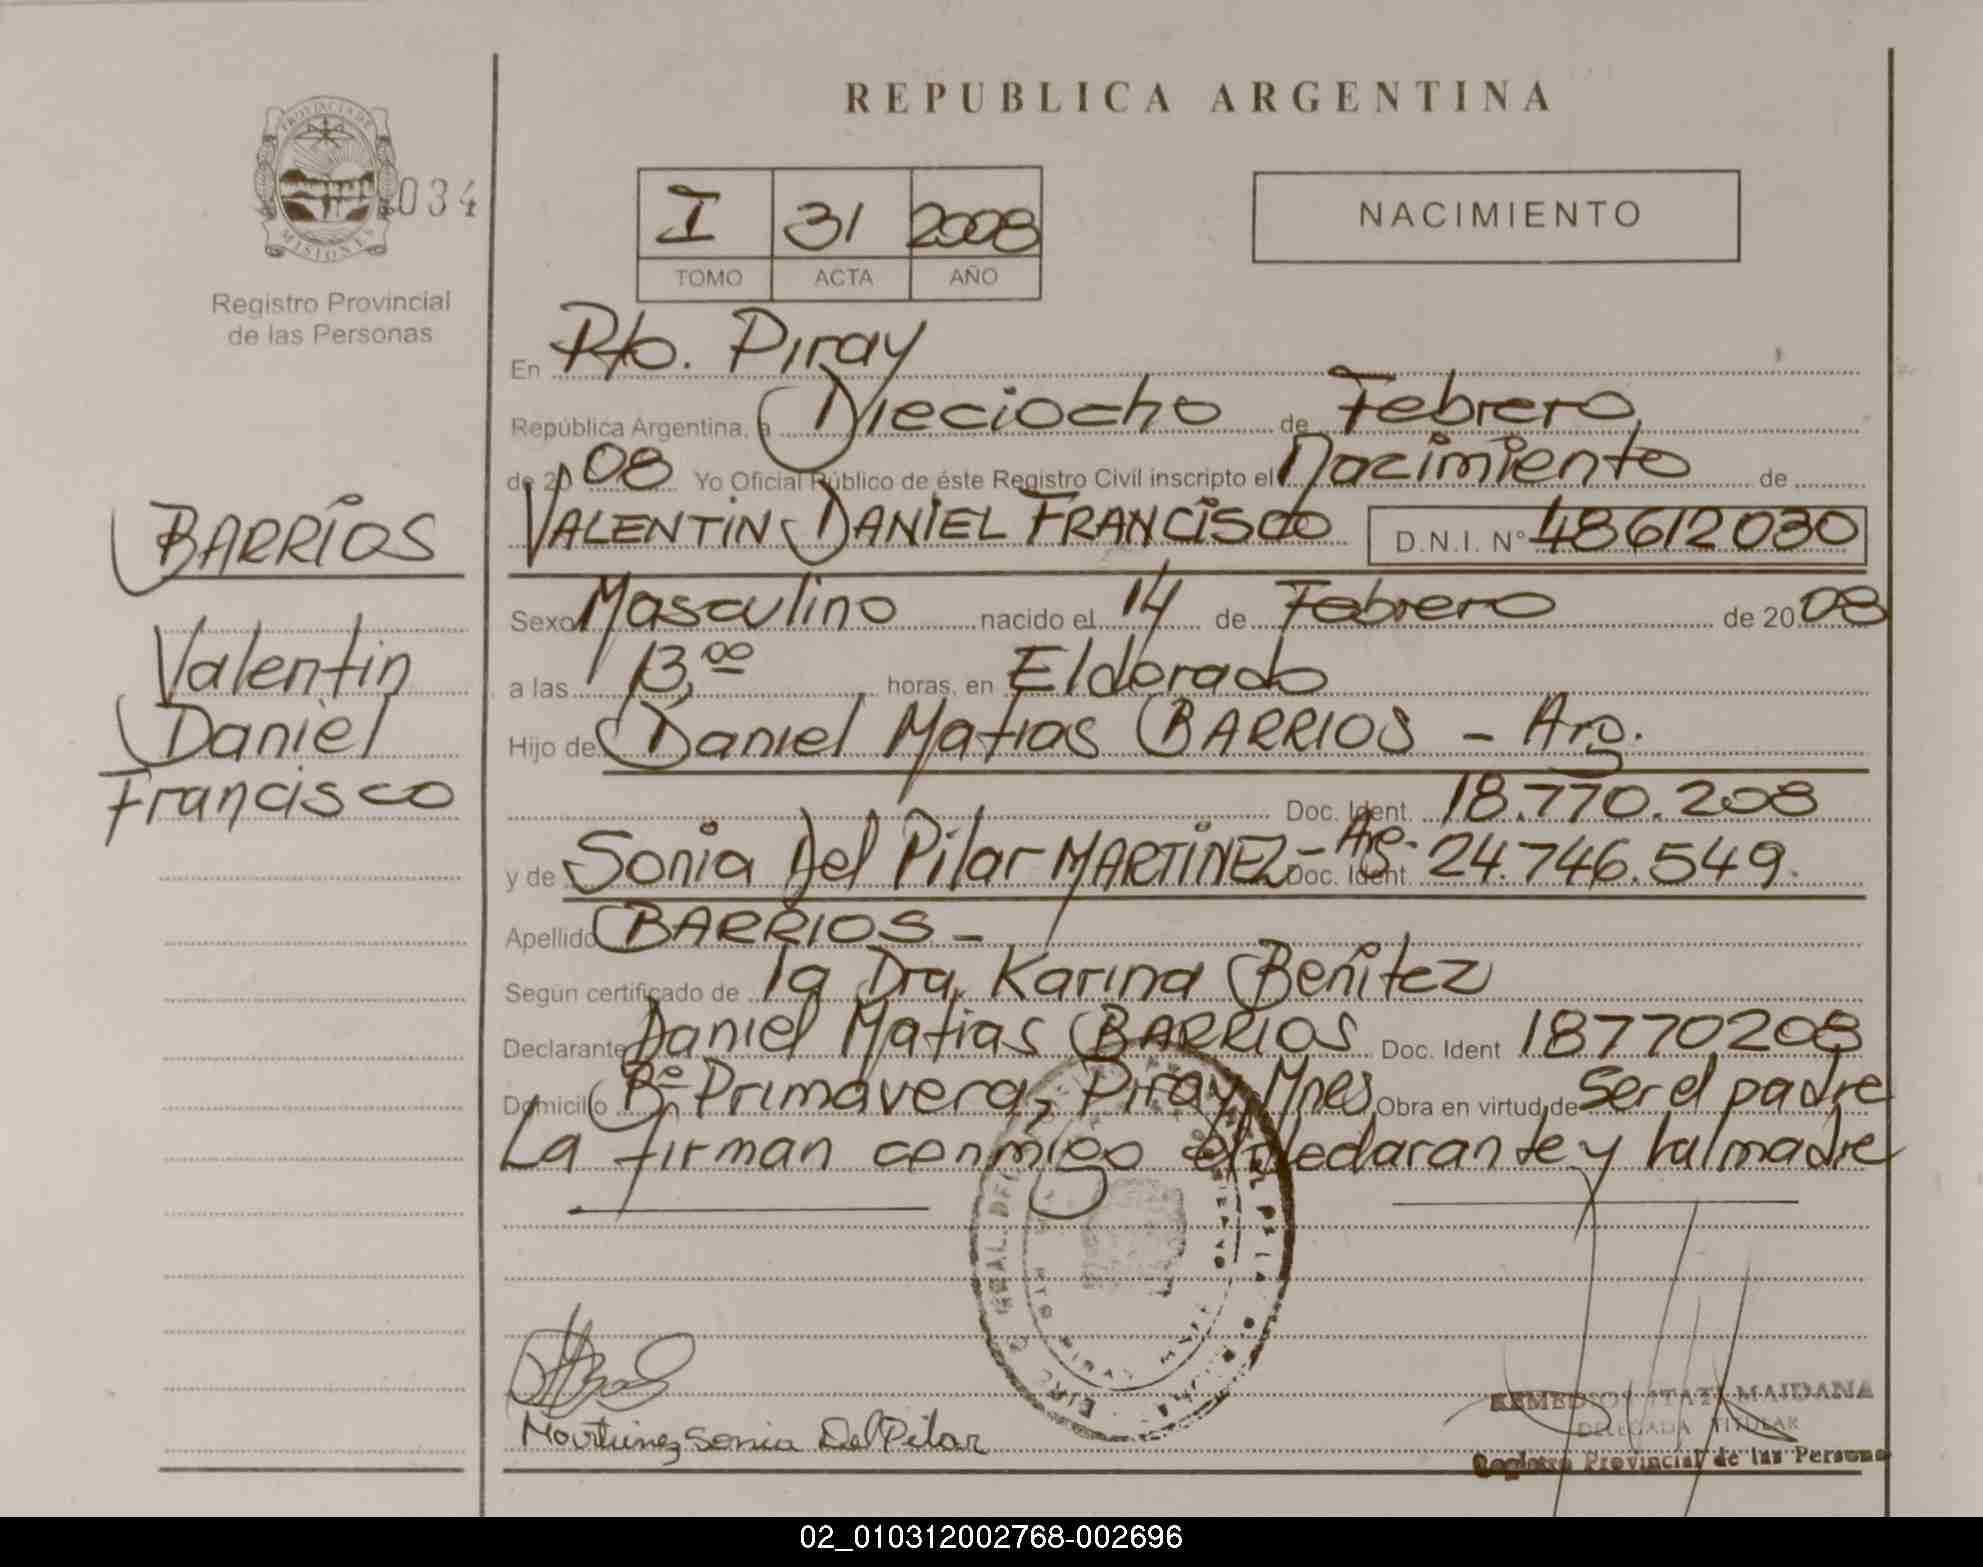 REPUBLICA ARGENTINA
PROVINCIA DE
MISIONES
034
Registro Provincial
de las Personas
I 31 2008
TOMO ACTA AÑO
NACIMIENTO
En Pto. Piray
República Argentina, a Dieciocho de Febrero
de 2008 Yo Oficial Público de éste Registro Civil inscripto el Nacimiento de
VALENTIN DANIEL FRANCISCO D.N.I. Nº 48612030
BARRIOS
Valentin
Daniel
Francisco
Sexo Masculino nacido el 14 de Febrero de 2008
a las 13,00 horas, en Eldorado
Hijo de Daniel Matias BARRIOS - Arg.
Doc. Ident. 18.770.208
y de Sonia Del Pilar MARTINEZ - Arg. Doc. Ident. 24.746.549.
Apellido BARRIOS -
Según certificado de la Dra. Karina Benitez
Declarante Daniel Matias BARRIOS Doc. Ident 18770208
Domicilio Bº Primavera, Piray Mnes Obra en virtud de ser el padre
La firman conmigo el declarante y la madre
Martinez Sonia Del Pilar
MAIDANA
DELEGADA TITULAR
Registro Provincial de las Personas
02_010312002768-002696